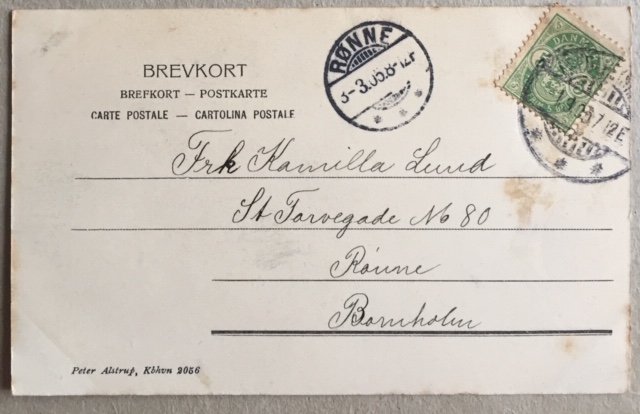 BREVKORT
BREFKORT — POSTKARTE
CARTE POSTALE — CARTOLINA POSTALE
RØNNE
3-3.05.8-12F
DANMARK
Frk Kamilla Lund
St Torvegade No 80
Rønne
Bornholm
Peter Alstrup, Kbhvn 2056